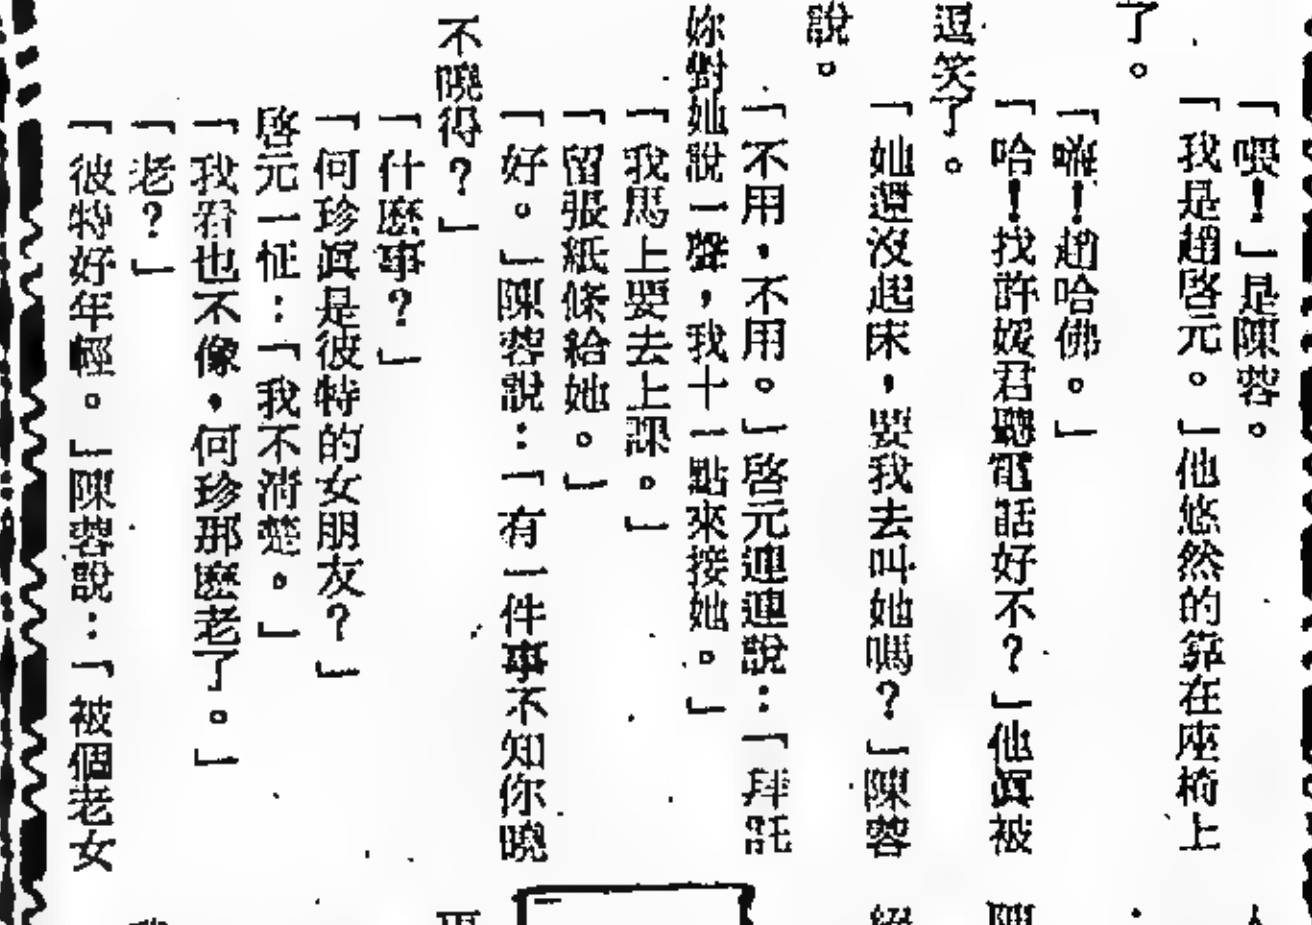 「喂！」是陳蓉。
「我是趙啓元。」他悠然的靠在座椅上
了。
「嗨！趙哈佛。」
「哈！找許媛君聽電話好不？」他眞被
逗笑了。
「她還沒起床，要我去叫她嗎？」陳蓉
說。
「不用，不用。」啓元連連說：「拜託
妳對她說一聲，我十一點來接她。」
「我馬上要去上課。」
「留張紙條給她。」
「好。」陳蓉說：「有一件事不知你曉
不曉得？」
「什麼事？」
「何珍眞是彼特的女朋友？」
啓元一怔：「我不清楚。」
「我看也不像，何珍那麼老了。」
「老？」
「彼特好年輕。」陳蓉說：「被個老女